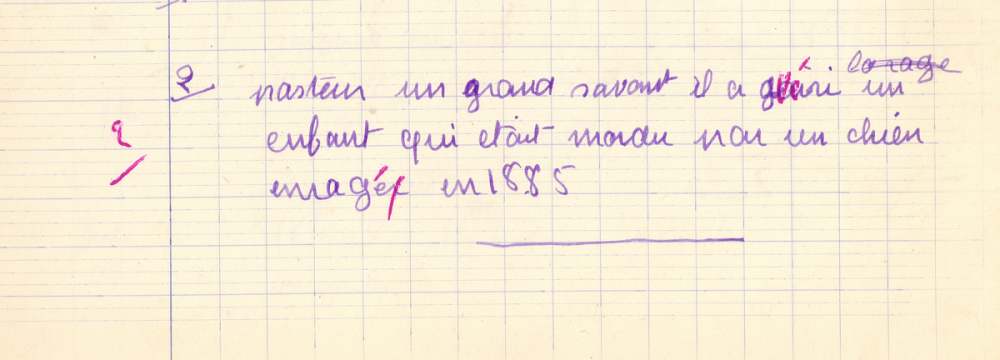 2 pasteur un grand savant il a guéri la rage un
2 enfant qui etait mordu par un chien
enragé en 1885